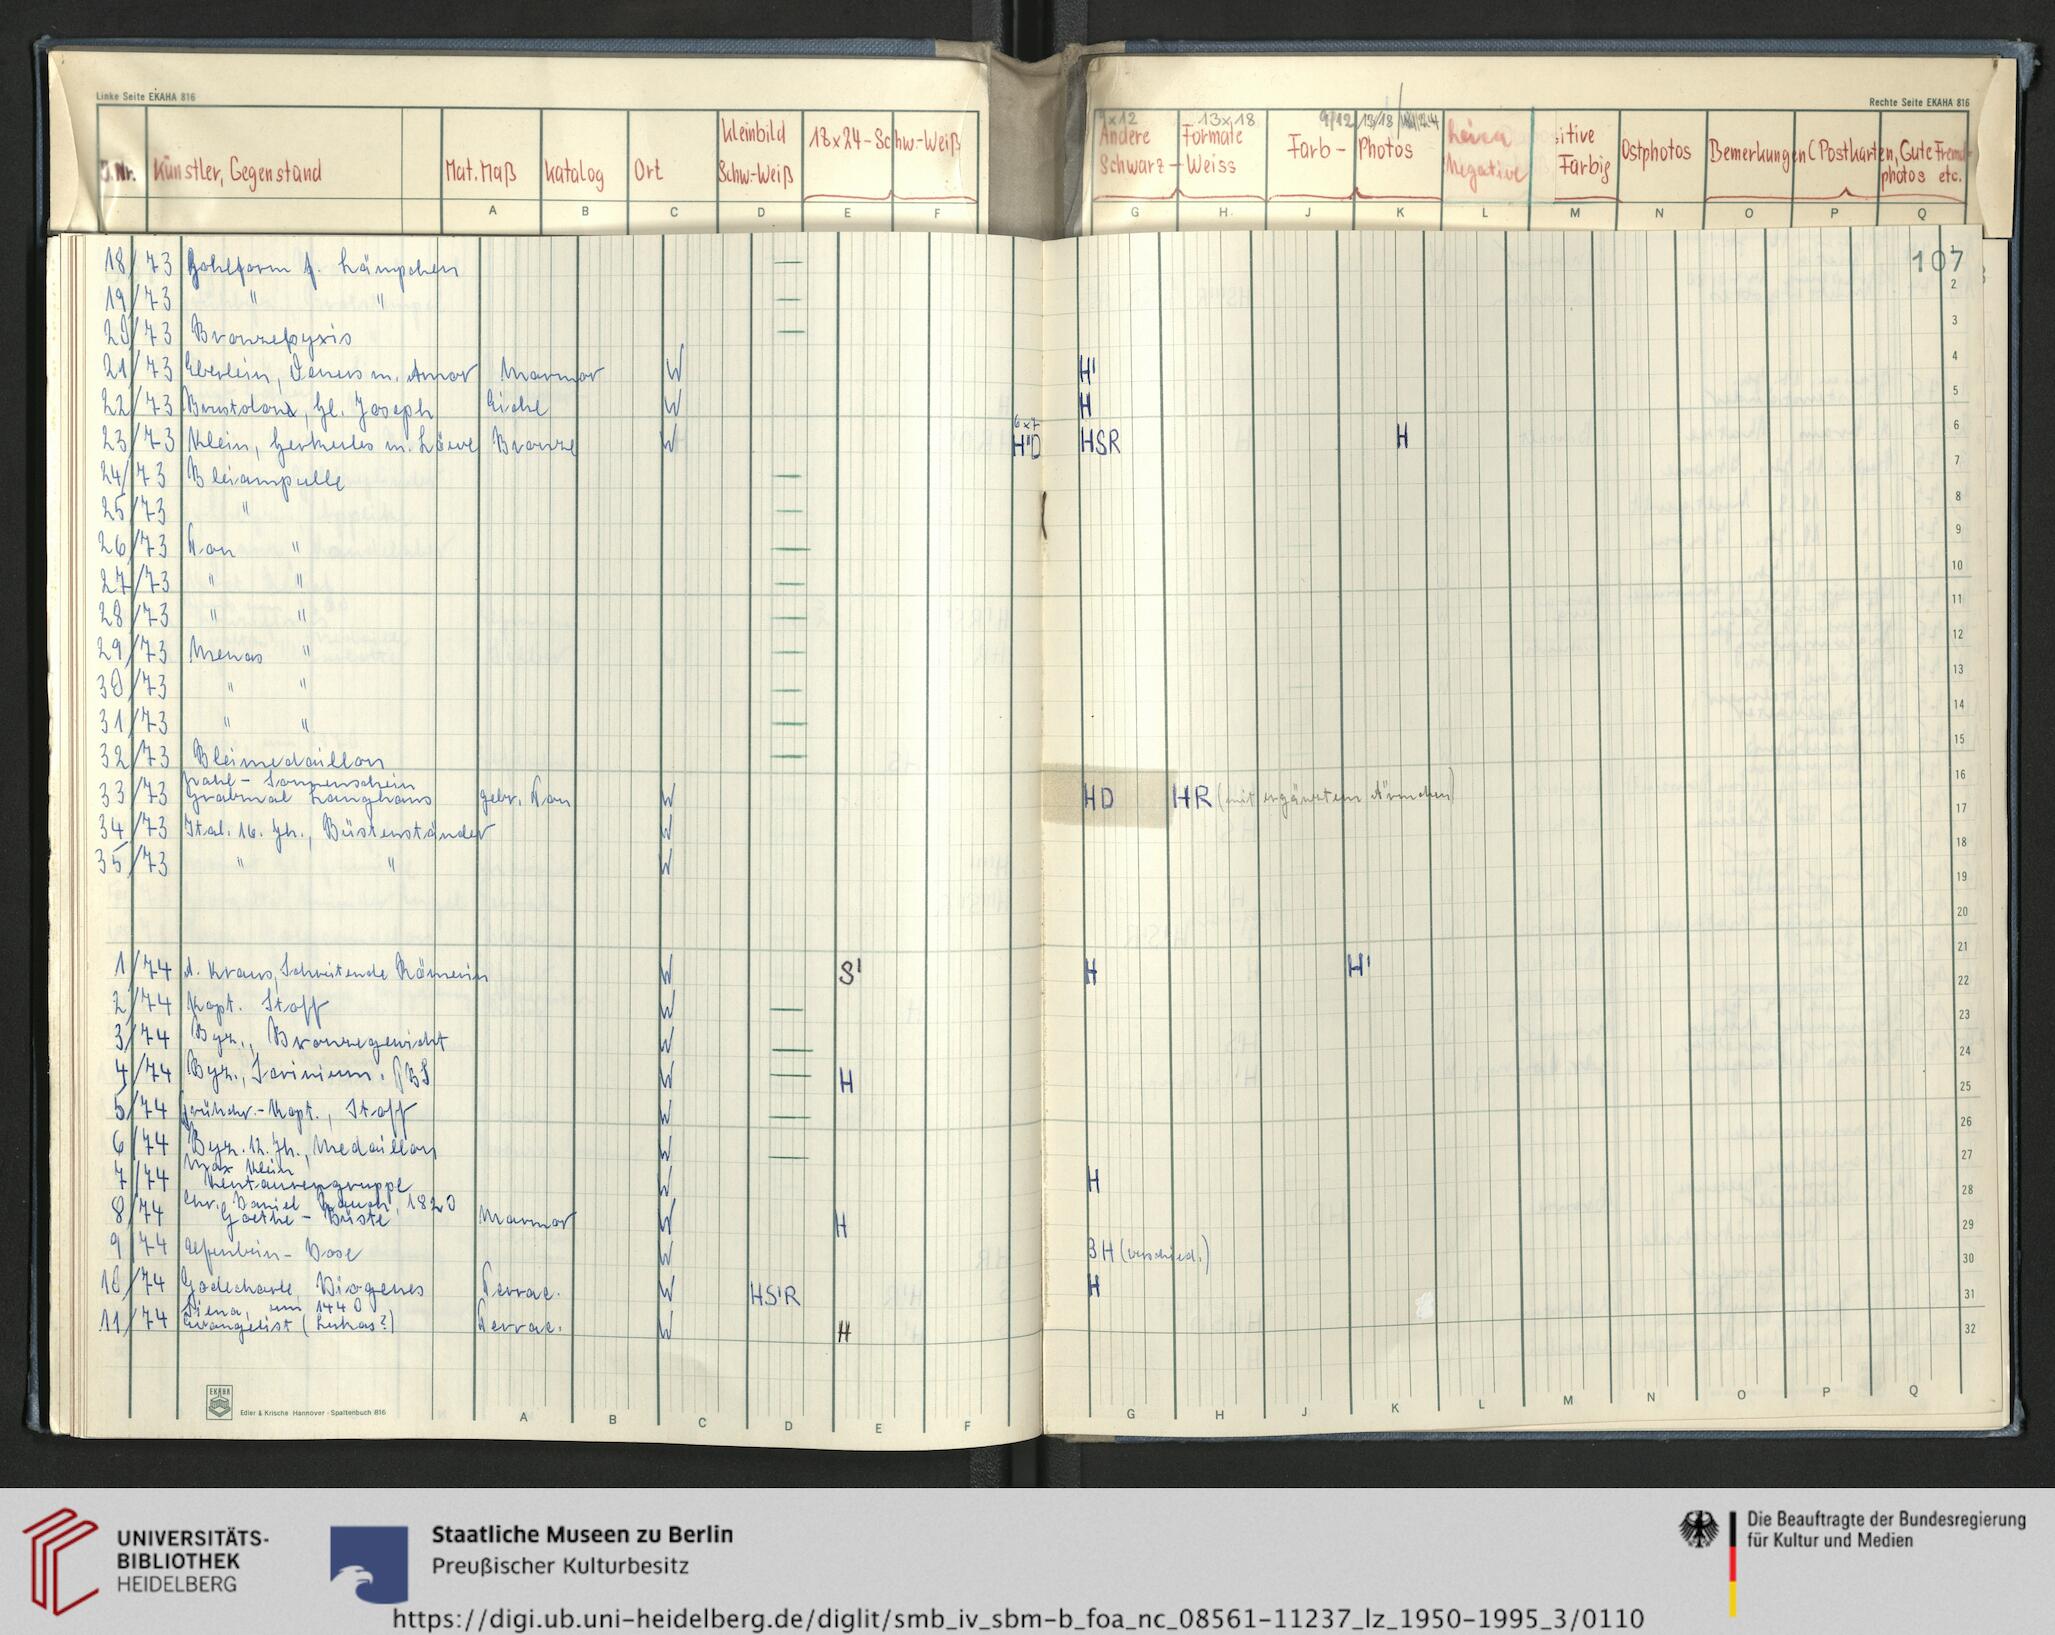 Linke Seite EKAHA 816
Rechte Seite EKAHA 816
J.Nr. Künstler, Gegenstand Mat. Maß Katalog Ort Kleinbild Schw-Weiß 18x24-Schw-Weiß
9x12 13x18 9/12 13/18
Andere Formate Schwarz-Weiss Farb-Photos Leica Negative sitive Farbig Ostphotos Bemerkungen (Postkarten, Gute Fremdphotos etc.
A B C D E F
G H J K L M N O P Q
107
18/73 Hohlform f. Lämpchen —
19/73 " " —
20/73 Bronzepyxis —
21/73 Eberlein, Venus m. Amor Marmor W H'
22/73 Brustolon, Hl. Joseph Eiche W H
23/73 Klein, Herkules m. Löwe Bronze W 6x7 H'D HSR H
24/73 Bleiampulle —
25/73 " —
26/73 Ton " —
27/73 " " —
28/73 " " —
29/73 Menas " —
30/73 " " —
31/73 " " —
32/73 Bleimedaillon —
33/73 Grabmal Langhans gebr. Ton W HD HR (mit ergänztem Ärmchen)
34/73 Ital. 16. Jh., Büstenständer W
35/73 " " W
1/74 A. Kraus, Schreitende Römerin W S' H H'
2/74 Kopt. Stoff W —
3/74 Byz., Bronzegewicht W —
4/74 Byz., W — H
5/74 Frühchr.-Kopt., Stoff W —
6/74 Byz. 12. Jh., Medaillon W —
7/74 Max Klein
Kentaurengruppe W H
8/74 Chr. Daniel Rauch, 1820
Goethe-Büste Marmor W H
9/74 Elfenbein-Dose W 3H (verschied.)
10/74 Godecharle, Diogenes Terrac. W HS'R H
11/74 Siena, um 1440
Evangelist (Lukas?) Terrac. W H
1
2
3
4
5
6
7
8
9
10
11
12
13
14
15
16
17
18
19
20
21
22
23
24
25
26
27
28
29
30
31
32
EKAHA
Edler & Krische Hannover · Spaltenbuch 816
A B C D E F
G H J K L M N O P Q
UNIVERSITÄTS-
BIBLIOTHEK
HEIDELBERG
Staatliche Museen zu Berlin
Preußischer Kulturbesitz
Die Beauftragte der Bundesregierung
für Kultur und Medien
https://digi.ub.uni-heidelberg.de/diglit/smb_iv_sbm-b_foa_nc_08561-11237_lz_1950-1995_3/0110